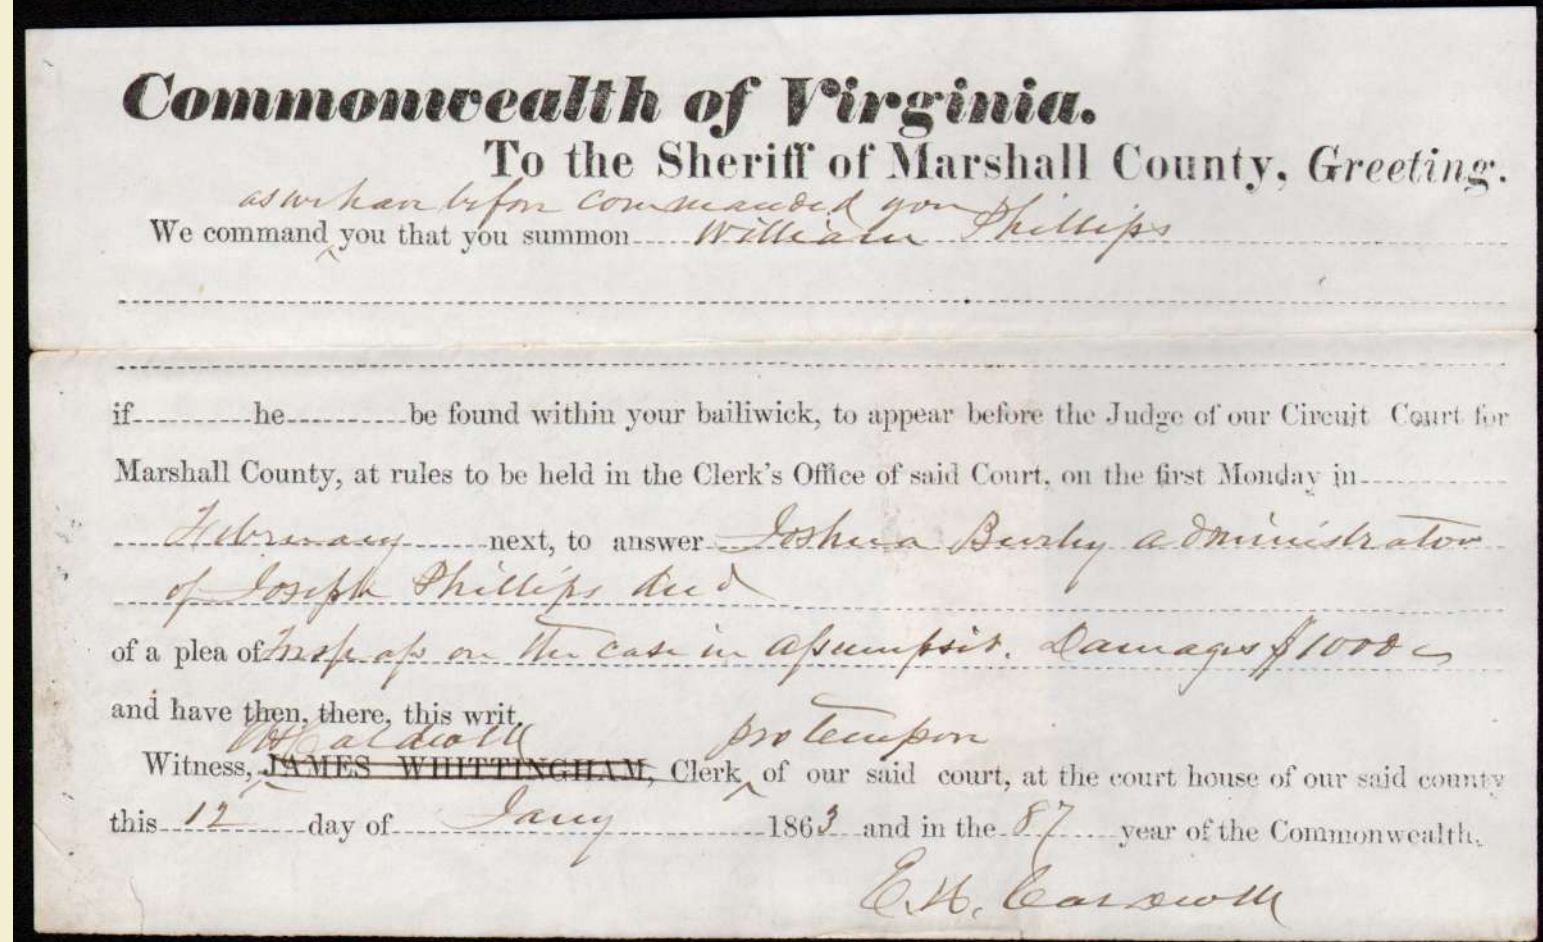 Commonwealth of Virginia.
To the Sheriff of Marshall County, Greeting.
as we have before commanded you
We command ‸ you that you summon William Phillips
if he be found within your bailiwick, to appear before the Judge of our Circuit Court for
Marshall County, at rules to be held in the Clerk's Office of said Court, on the first Monday in
February next, to answer Joshua Burley administrator
of Joseph Phillips decd
of a plea of Tresspass on the case in assumpsit. Damages $1000
and have then, there, this writ.
E H Caldwell pro tempore
Witness, ‸ JAMES WHITTINGHAM, Clerk ‸ of our said court, at the court house of our said county
this 12 day of Jany 1863 and in the 87 year of the Commonwealth.
E. H. Caldwell